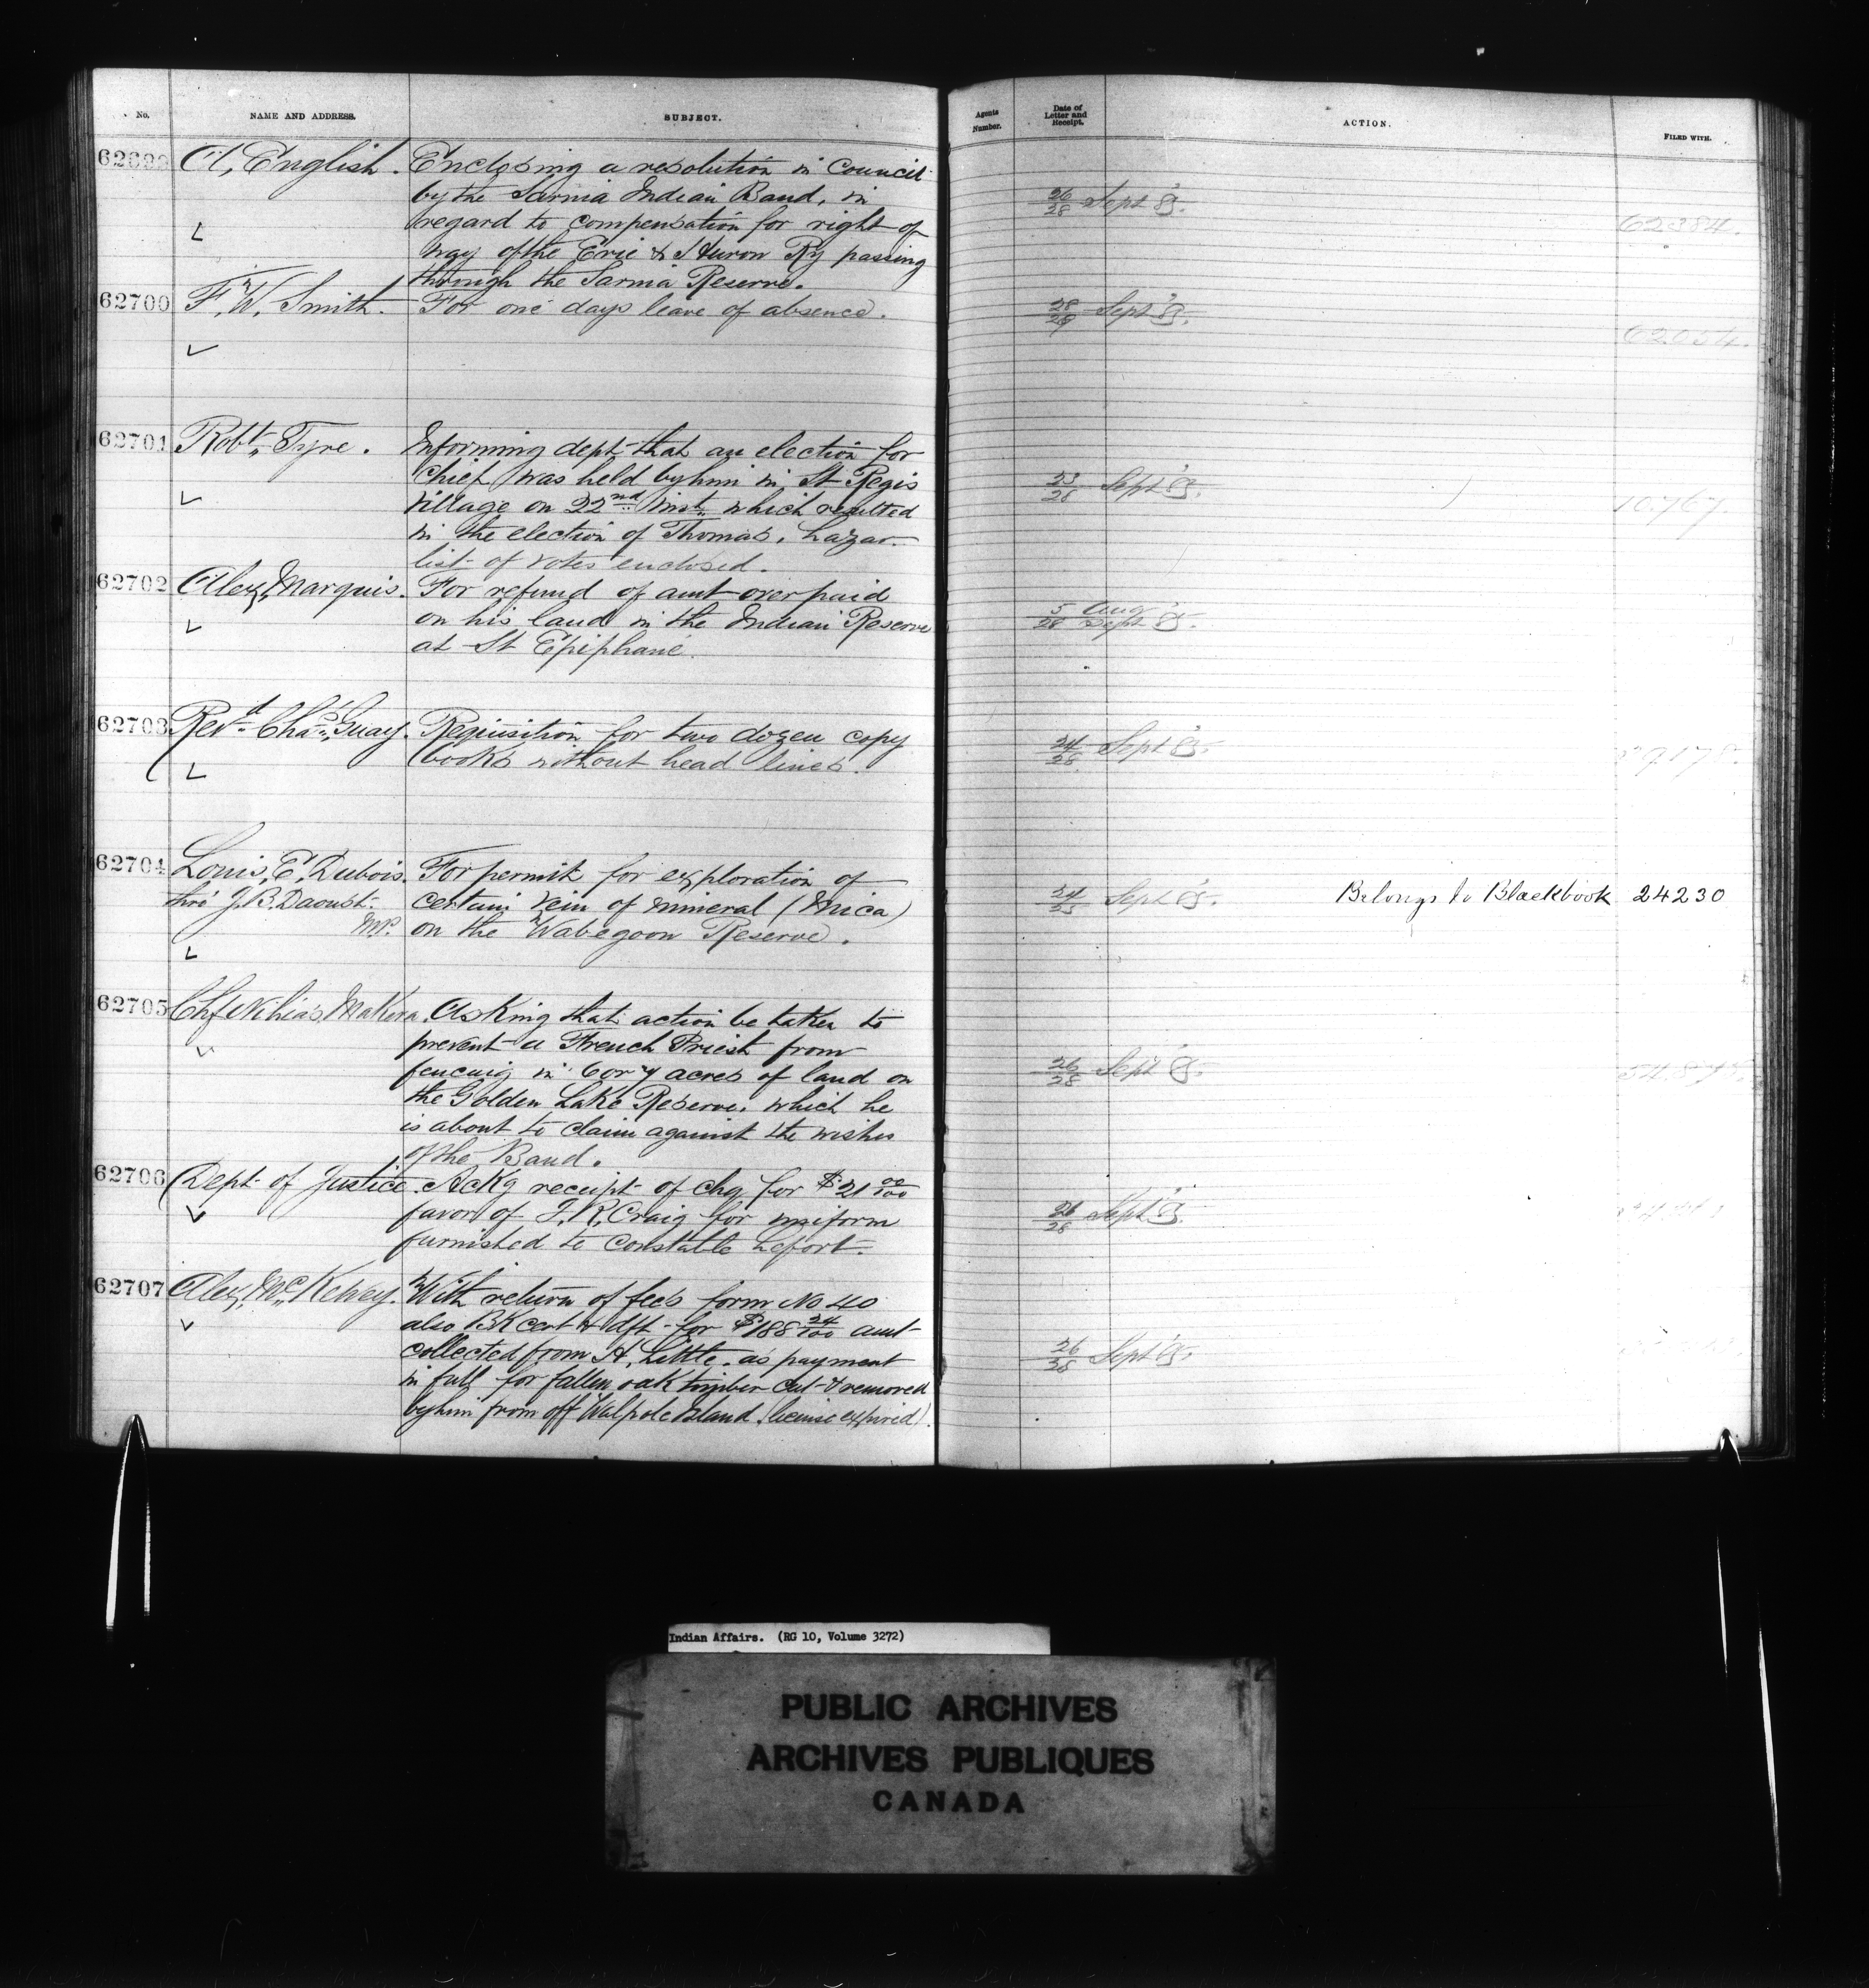 No. NAME AND ADDRESS. SUBJECT. Agents Number. Date of Letter and Receipt. ACTION. FILED WITH.
62699 A. English. Enclosing a resolution in Council
by the Sarnia Indian Band, in 26/28 Sept 85.
regard to compensation for right of 62384.
way of the Erie & Huron Ry passing
through the Sarnia Reserve.
62700 F. W. Smith. For one days leave of absence. 28/29 Sept 85.
62654.
62701 Robt. Tyre. Informing dept that an election for
Chief was held by him in St Regis 23/28 Sept 85.
Village on 22nd inst. which resulted 10.767.
in the election of Thomas, Lazar.
list of votes enclosed.
62702 Alex. Marquis. For refund of amt overpaid
on his land in the Indian Reserve 5/28 Aug Sept 85.
at St Epiphane.
62703 Revd. Chas. Guay. Requisition for two dozen copy
books without head lines. 24/28 Sept 85.
62704 Louis, E, Dubois. For permit for exploration of
thro' J. B. Daoust. certain vein of mineral (Mica) Sept 85. Belongs to Blackbook 24230
M.P. on the Wabegoon Reserve.
62705 Chf Makera. Asking that action be taken to
prevent a French Priest from
fencing in 6 or 7 acres of land on 26/28 Sept 85.
the Golden Lake Reserve. which he
is about to claim against the wishes
of the Band.
62706 Dept of Justice. Ackg receipt of chq for $21 00/100
favor of J. R. Craig for uniform 26/28 Sept 85.
furnished to Constable Lefort.
62707 Alex. McKelvey. With return of fees form No 40
also BK cert & dft for $188 24/100 amt
collected from H. Little. as payment 26/28 Sept 85.
in full for fallen oak timber cut & removed
by him from off Walpole Island. (license expired).
Indian Affairs. (RG 10, Volume 3272)
PUBLIC ARCHIVES
ARCHIVES PUBLIQUES
CANADA